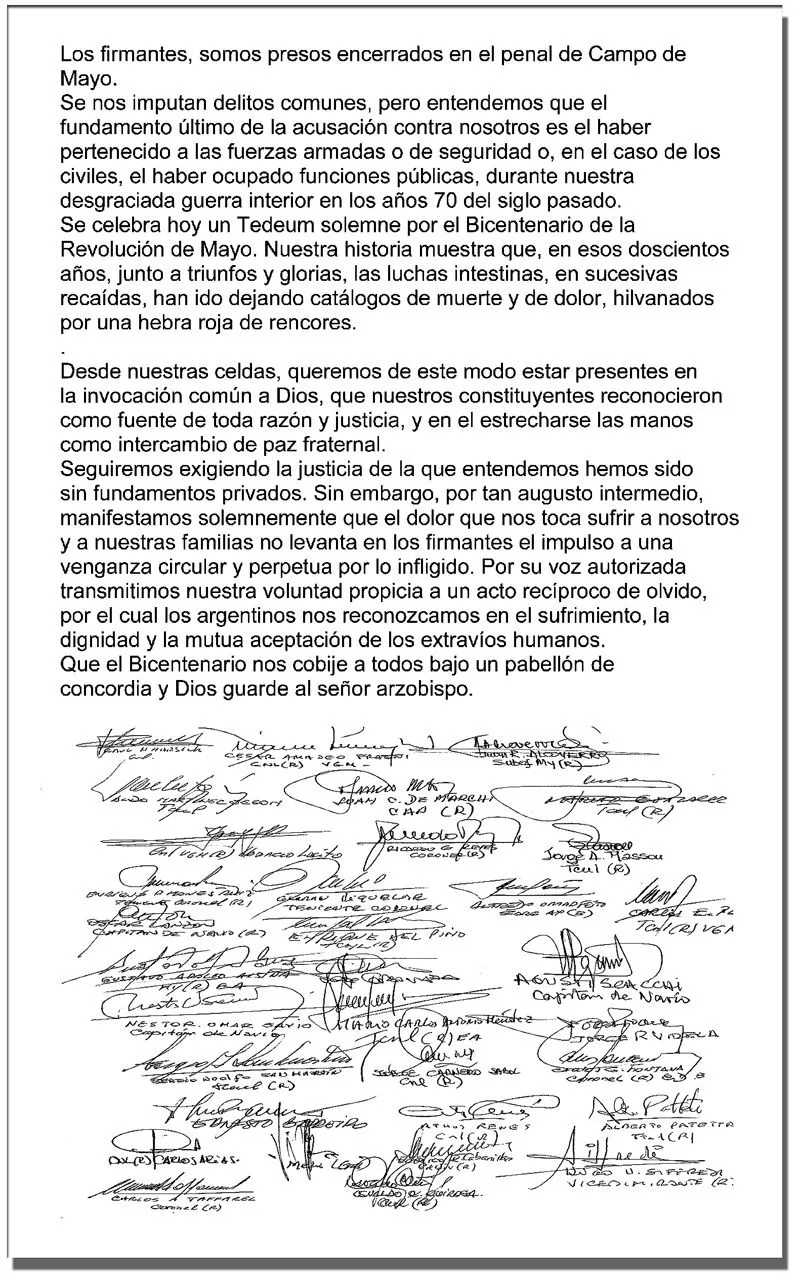 Los firmantes, somos presos encerrados en el penal de Campo de
Mayo.
Se nos imputan delitos comunes, pero entendemos que el
fundamento último de la acusación contra nosotros es el haber
pertenecido a las fuerzas armadas o de seguridad o, en el caso de los
civiles, el haber ocupado funciones públicas, durante nuestra
desgraciada guerra interior en los años 70 del siglo pasado.
Se celebra hoy un Tedeum solemne por el Bicentenario de la
Revolución de Mayo. Nuestra historia muestra que, en esos doscientos
años, junto a triunfos y glorias, las luchas intestinas, en sucesivas
recaídas, han ido dejando catálogos de muerte y de dolor, hilvanados
por una hebra roja de rencores.
.
Desde nuestras celdas, queremos de este modo estar presentes en
la invocación común a Dios, que nuestros constituyentes reconocieron
como fuente de toda razón y justicia, y en el estrecharse las manos
como intercambio de paz fraternal.
Seguiremos exigiendo la justicia de la que entendemos hemos sido
sin fundamentos privados. Sin embargo, por tan augusto intermedio,
manifestamos solemnemente que el dolor que nos toca sufrir a nosotros
y a nuestras familias no levanta en los firmantes el impulso a una
venganza circular y perpetua por lo infligido. Por su voz autorizada
transmitimos nuestra voluntad propicia a un acto recíproco de olvido,
por el cual los argentinos nos reconozcamos en el sufrimiento, la
dignidad y la mutua aceptación de los extravíos humanos.
Que el Bicentenario nos cobije a todos bajo un pabellón de
concordia y Dios guarde al señor arzobispo.
CESAR AMADEO
CNL(R) VGM
SubOf My(R)
JUAN C. DE MARCHI
CAP (R)
GONZALEZ
Tcnl (R)
RICARDO G. REYES
CORONEL(R)
Jorge A.
Tcnl (R)
TENIENTE CORONEL
CARLOS E.
Tcnl (R) VGM
CAPITAN DE NAVIO (R)
ENRIQUE DEL PINO
GUSTAVO ADOLFO
MY(R)
Capitán de Navío
NESTOR OMAR SAVIO
Capitán de Navío
MARIO CARLOS Antonio Méndez
Tcnl (R) EA
JORGE R VIDELA
SAN MARTIN
Tcnel (R)
Cnl (R)
CORONEL (R)
ERNESTO BARREIRO
ATHOS RENES
Cnl (R)
ALBERTO PATETTA
Tcnl (R)
CARLOS ARIAS
HUGO N. SIFFREDI
VICEALMIRANTE (R)
CARLOS A TAFFAREL
Coronel (R)
Tcnl (R)